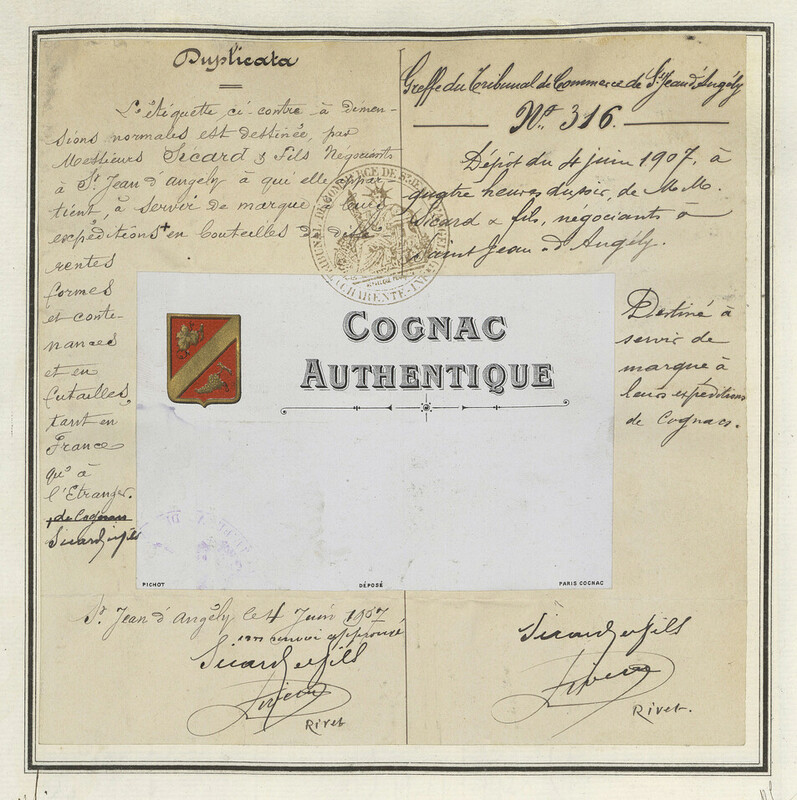 Duplicata
L'étiquette ci-contre à dimen-
sions normales est destinée, par
Messieurs Sicard & Fils Négociants
à St Jean d'angély à qui elle appar-
tient, à servir de marque à leurs
expéditions + en bouteilles de diffé
rentes
formes
et conte-
nances
et en
futailles,
tant en
France
qu'à
l'Etranger.
+ de Cognacs
Sicard et fils
St Jean d'Angély le 4 Juin 1907
un renvoi approuvé
Sicard et fils
Rivet
Greffe du Tribunal de Commerce de St Jean d'Angély
No. 316.
Dépôt du 4 juin 1907, à
quatre heures du soir, de M.M.
Sicard & fils, négociants à
Saint Jean-d'Angély.
Destiné à
servir de
marque à
leurs expéditions
de Cognacs.
Sicard et fils
Rivet.
TRIBUNAL DE COMMERCE DE ST JEAN D'ANGELY
CHARENTE-INF
COGNAC
AUTHENTIQUE
PICHOT
DÉPOSÉ
PARIS COGNAC